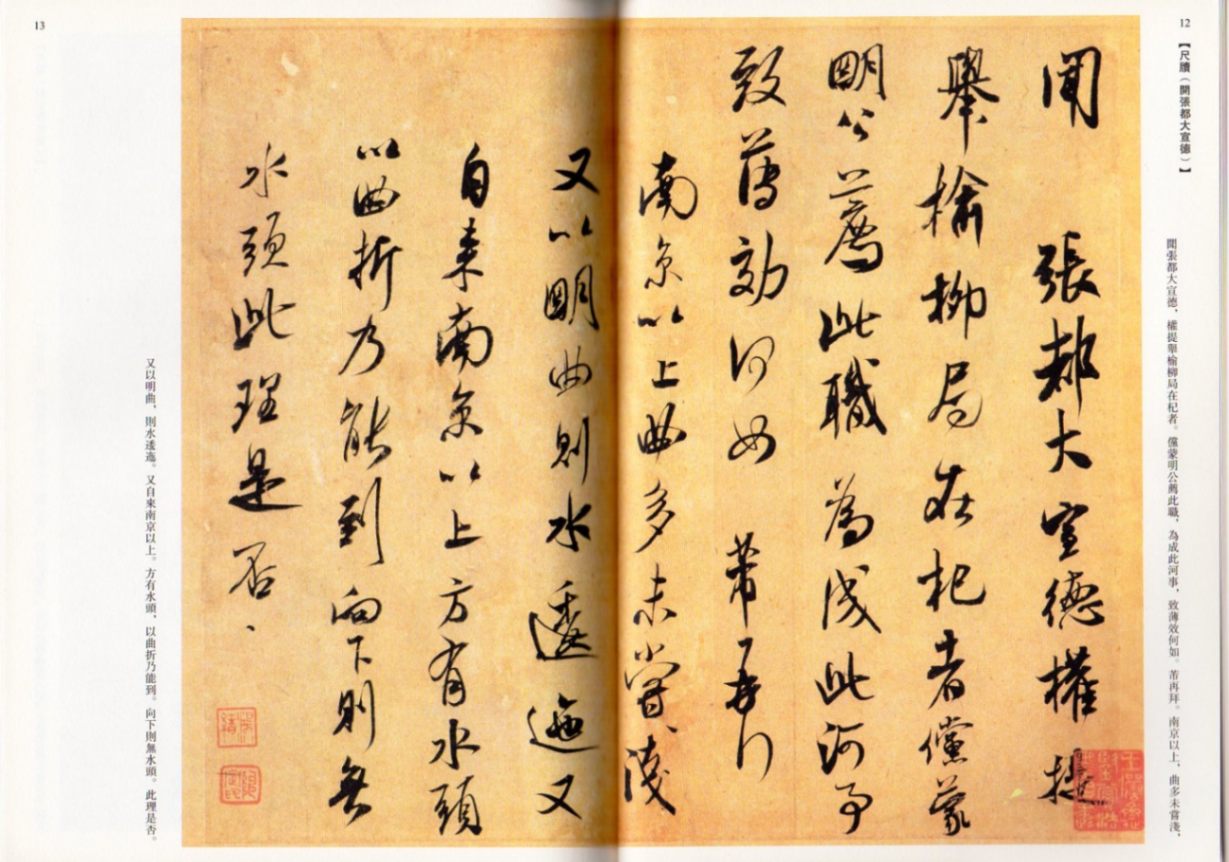 12
【尺牘（聞張都大宣德）】
聞張都大宣德，權提舉榆柳局在杞者。儻蒙明公薦此職，為成此河事，致薄效何如。芾再拜。南京以上，曲多未嘗淺，
聞 張都大宣德權提
舉榆柳局在杞者儻蒙
明公薦此職為成此河事
致薄効何如 芾再拜
南京以上曲多未嘗淺
又以明曲則水逶迤又
自來南京以上方有水頭
以曲折乃能到向下則無
水頭此理是否
又以明曲，則水逶迤。又自來南京以上。方有水頭，以曲折乃能到。向下則無水頭。此理是否。
13